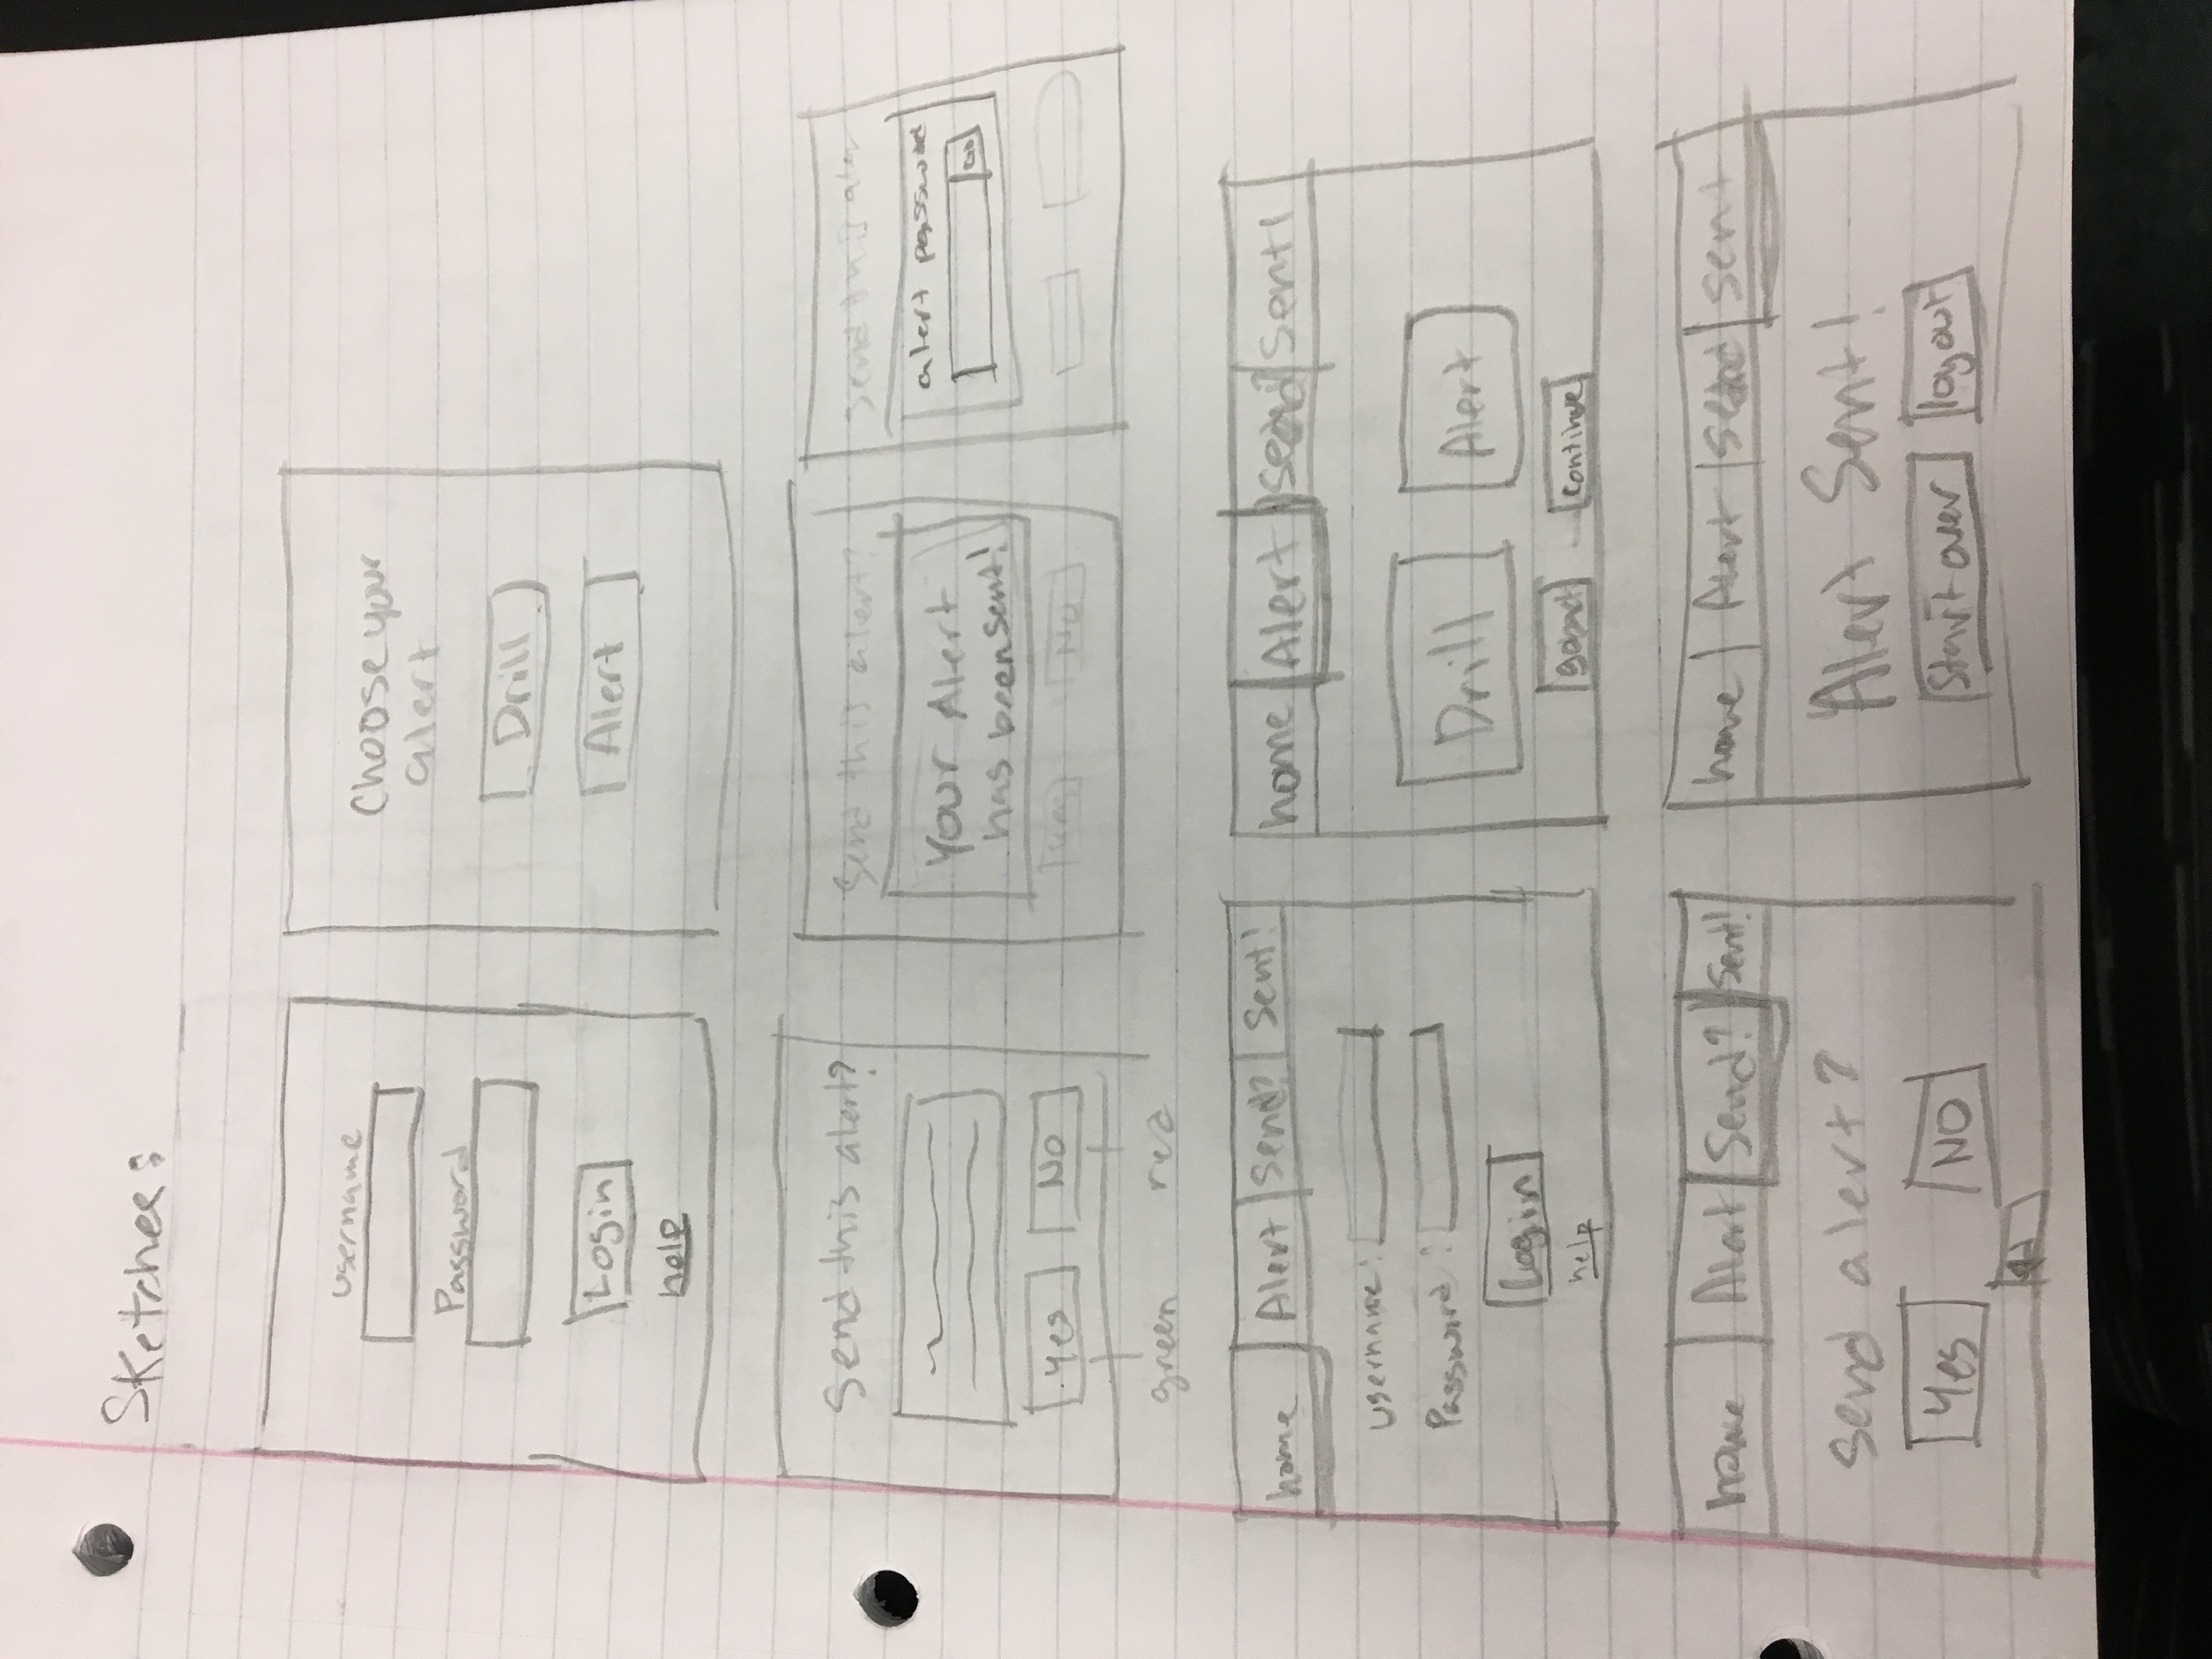 Sketches:
username
Password
Login
help
Choose your
alert
Drill
Alert
Send this alert?
Yes
NO
green
red
Send this alert?
Your Alert
has been sent!
Yes
NO
Send this aler
alert password
Go
home Alert Send? Sent!
username:
Password:
Login
help
home Alert Send? Sent!
Drill
Alert
go back
continue
home Alert Send? Sent!
Send alert?
Yes
NO
home Alert Send Sent
Alert Sent!
Start over
logout